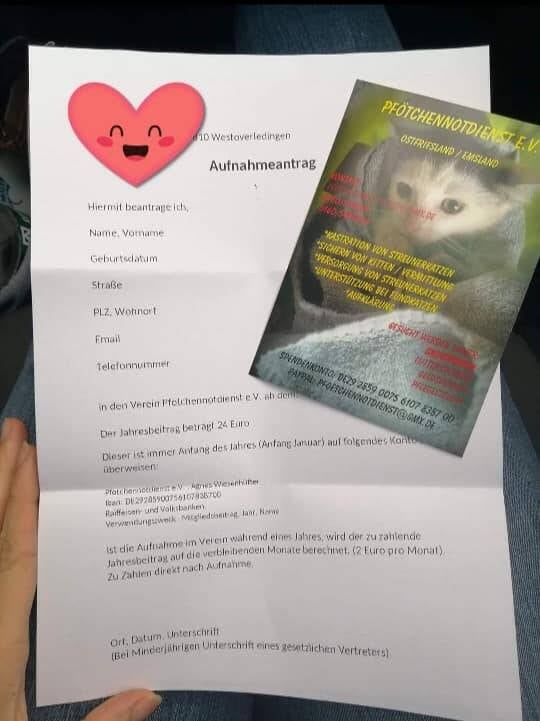 10 Westoverledingen
Aufnahmeantrag
Hiermit beantrage ich,
Name, Vorname
Geburtsdatum
Straße
PLZ, Wohnort
Email
Telefonnummer
in den Verein Pfötchennotdienst e.V. ab dem
Der Jahresbeitrag beträgt 24 Euro
Dieser ist immer Anfang des Jahres (Anfang Januar) auf folgendes Konto
überweisen:
Pfötchennotdienst e.V., Agnes Wiesenhütter
Iban: DE29285900756107838700
Raiffeisen- und Volksbanken
Verwendungszweck: Mitgliedsbeitrag, Jahr, Name
Ist die Aufnahme im Verein während eines Jahres, wird der zu zahlende
Jahresbeitrag auf die verbleibenden Monate berechnet. (2 Euro pro Monat).
Zu Zahlen direkt nach Aufnahme.
Ort, Datum, Unterschrift
(Bei Minderjährigen Unterschrift eines gesetzlichen Vertreters)
PFÖTCHENNOTDIENST E.V.
OSTFRIESLAND / EMSLAND
*KASTRATION VON STREUNERKATZEN
*SICHERN VON KITTEN / VERMITTLUNG
*VERSORGUNG VON STREUNERKATZEN
*UNTERSTÜTZUNG BEI FUNDKATZEN
*AUFKLÄRUNG
GESUCHT WERDEN IMMER:
SPENDENKONTO: DE29 2859 0075 6107 8387 00
PAYPAL: PFOETCHENNOTDIENST@GMX.DE